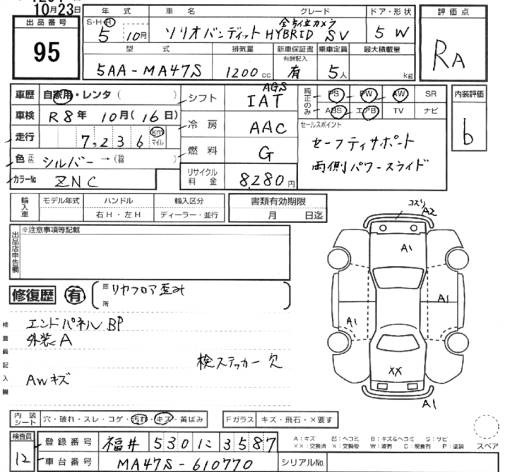 10月23日
出品番号
95
年式
S・H・R
5年 10月
車名
ソリオバンディット
グレード
全方位カメラ
HYBRID SV
ドア・形状
5 W
評価点
RA
型式
5AA-MA47S
排気量
1200cc
新車保証書
有
乗車定員
5人
最大積載量
kg
車歴 自家用・レンタ( )
シフト AGS IAT
純正のみ PS PW AW SR
ABS エアB TV ナビ
内装評価
b
車検 R8年 10月(16日)
冷房 AAC
セールスポイント
セーフティサポート
両側パワースライド
走行 7,236 km マイル
燃料 G
色 シルバー→( )
カラーNo ZNC
リサイクル料金 8,280円
輸入車 モデル年式 ハンドル 右H・左H 輸入区分 ディーラー・並行
書類有効期限
月 日迄
出品店申告欄
※注意事項等記載
コスリ A2
A1
A1
A1
XX
A1
修復歴 有 箇所 リヤフロア歪み
検査員記入欄
エンドパネルBP
外装A
検ステッカー欠
AWキズ
内装シート 穴・破れ・スレ・コゲ・汚れ・キズ・黄ばみ
Fガラス キズ・飛石・×要す
スペア
検査員
12
登録番号 福井 530 に 3587
車台番号 MA47S-610770
シリアルNo.